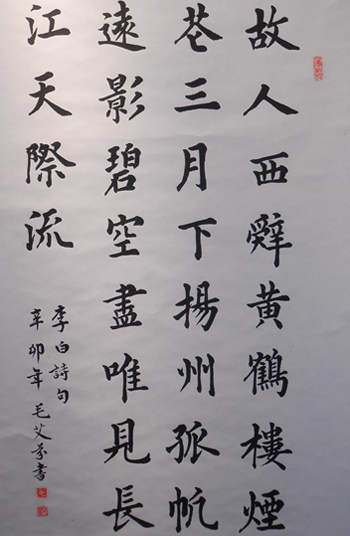 故人西辭黄鶴樓煙
花三月下揚州孤帆
遠影碧空盡唯見長
江天際流
李白詩句
辛卯年毛艾芬書